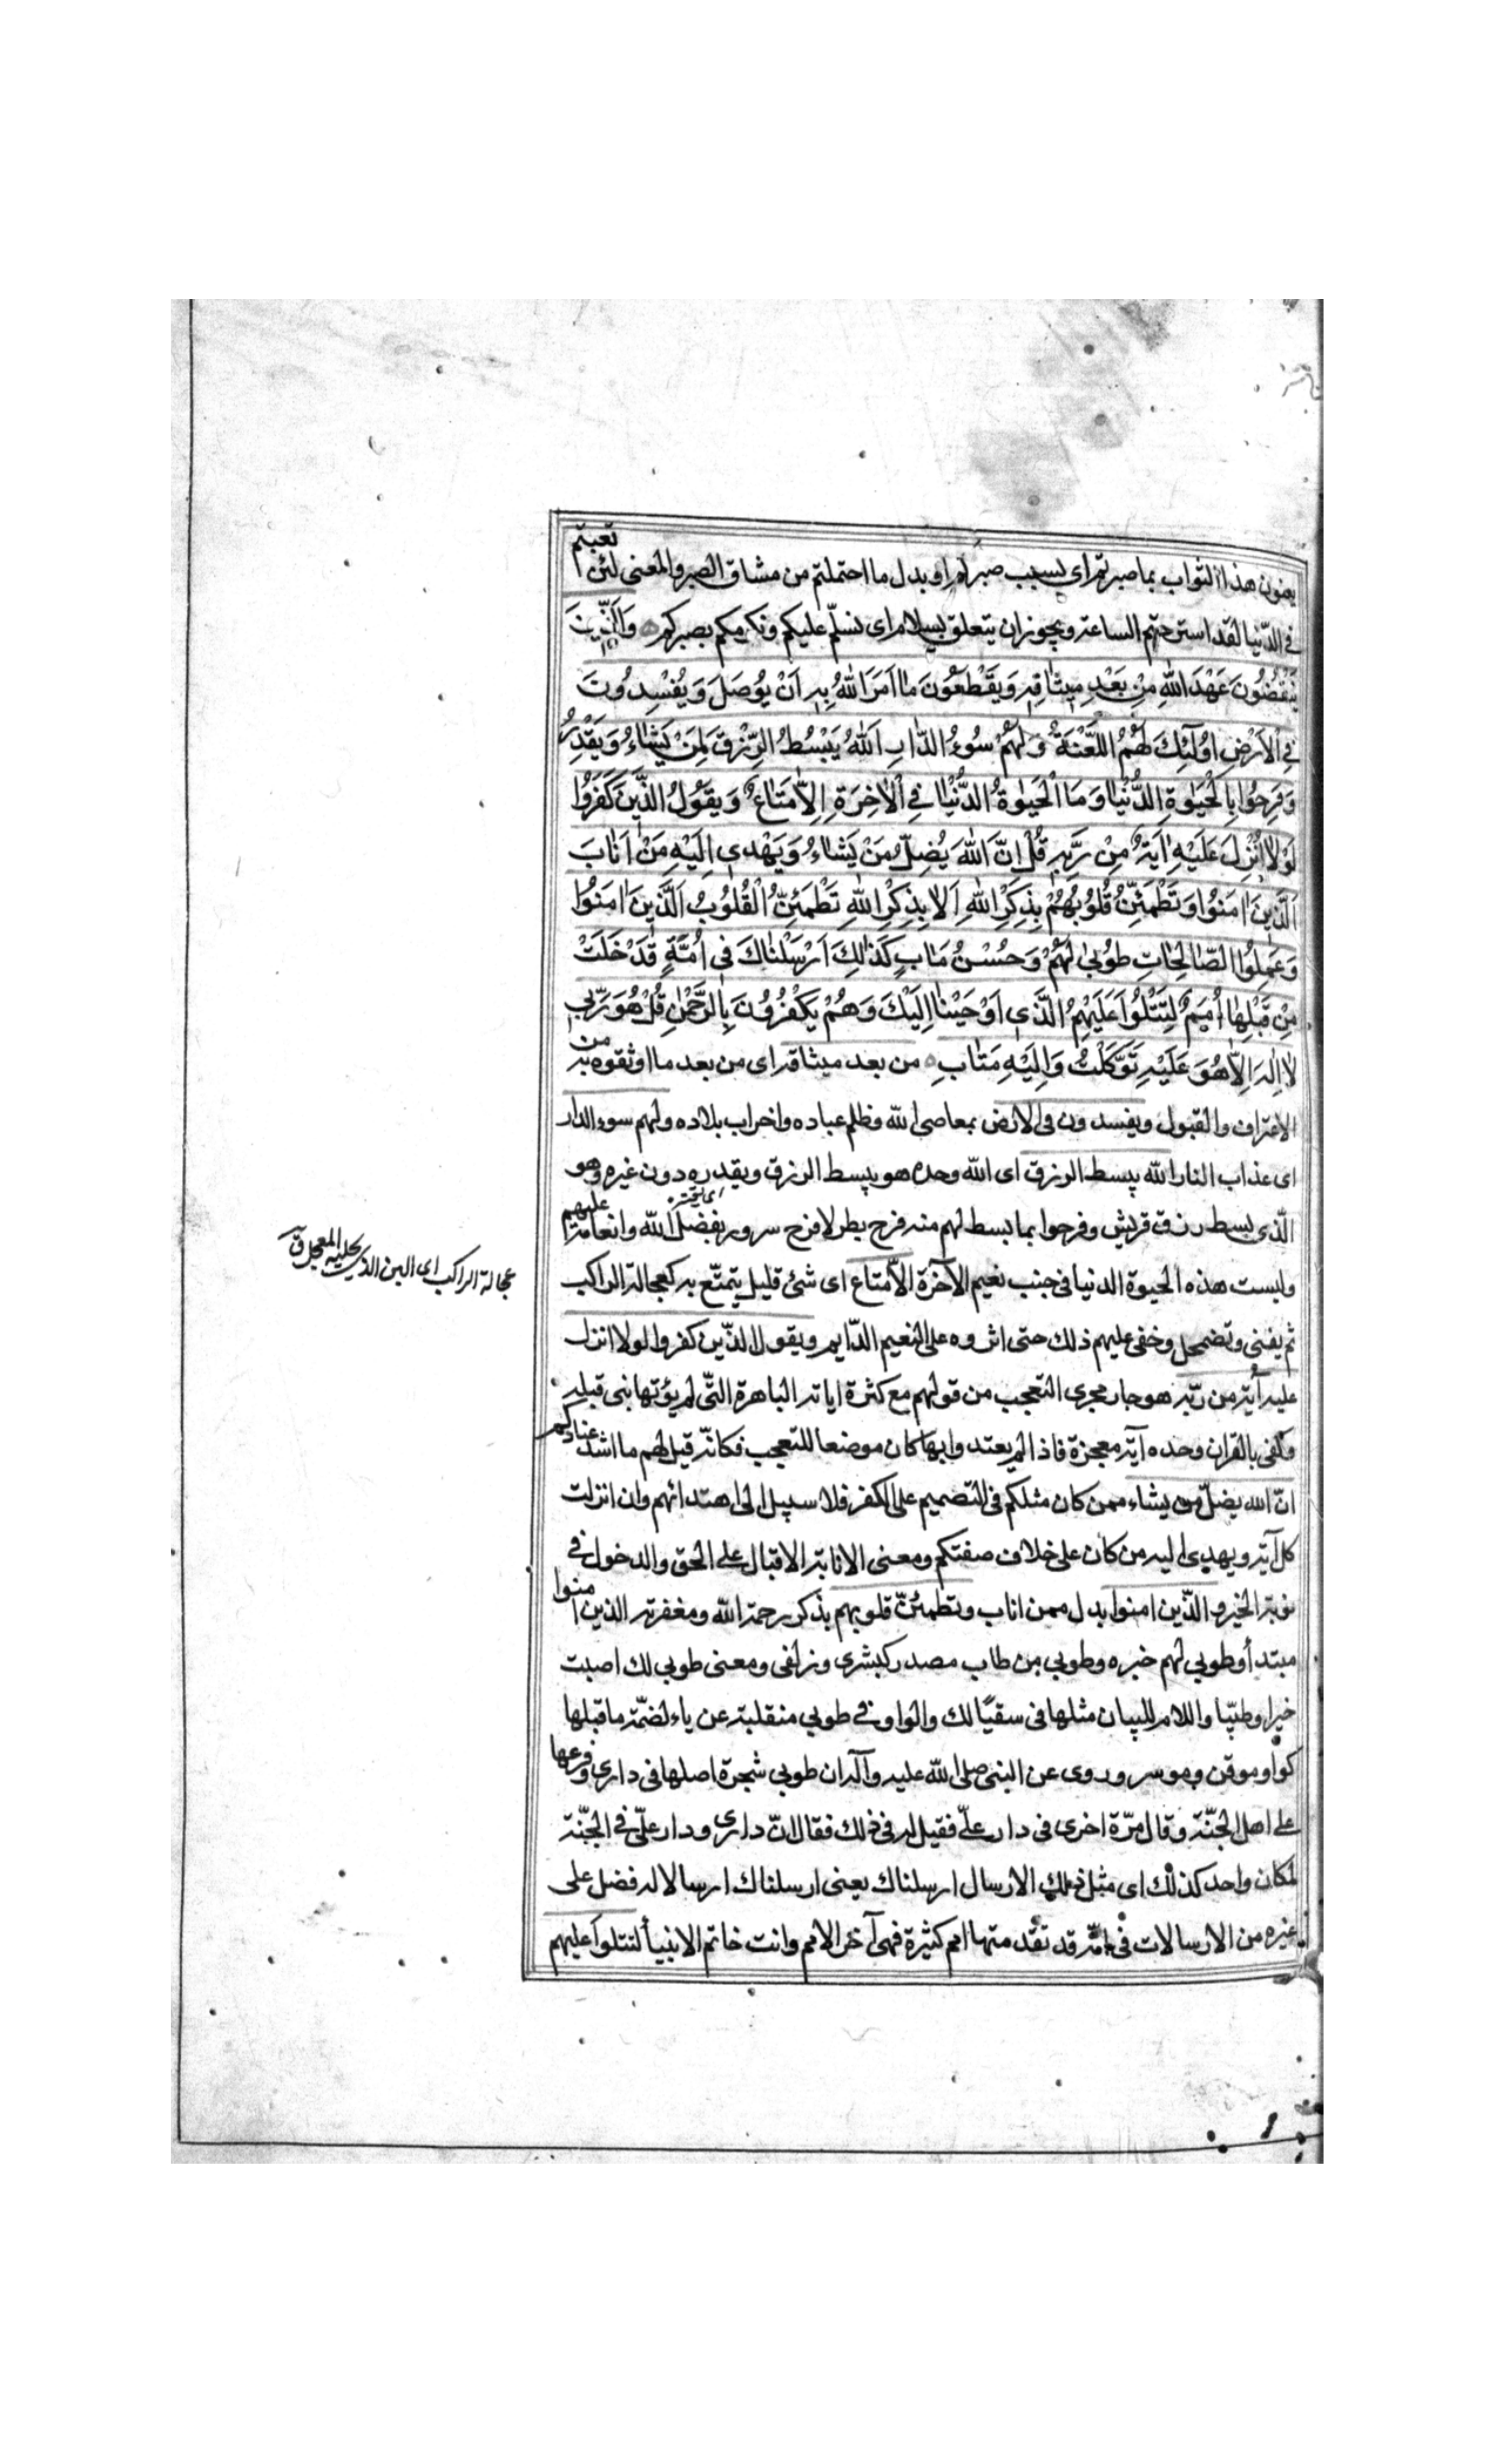 يعنون هذا الثواب بما صبرتم اى بسبب صبركم او بدل ما احتملتم من مشاق الصبر والمعنى لئن تعبتم
فى الدّنيا لقد استرحتم الساعة ويجوز ان يتعلق بسلام اى نسلّم عليكم ونكرمكم بصبركم وَالَّذِينَ
يَنْقُضُونَ عَهْدَ اللّٰهِ مِنْ بَعْدِ مِيثَاقِهِ وَيَقْطَعُونَ مَا اَمَرَ اللّٰهُ بِهِ اَنْ يُوصَلَ وَيُفْسِدُونَ
فِى الْاَرْضِ اُولٰٓئِكَ لَهُمُ اللَّعْنَةُ وَلَهُمْ سُوءُ الدَّارِ اَللّٰهُ يَبْسُطُ الرِّزْقَ لِمَنْ يَشَاءُ وَيَقْدِرُ
وَفَرِحُوا بِالْحَيٰوةِ الدُّنْيَا وَمَا الْحَيٰوةُ الدُّنْيَا فِى الْاٰخِرَةِ اِلَّا مَتَاعٌ وَيَقُولُ الَّذِينَ كَفَرُوا
لَوْلَا اُنْزِلَ عَلَيْهِ اٰيَةٌ مِنْ رَبِّهِ قُلْ اِنَّ اللّٰهَ يُضِلُّ مَنْ يَشَاءُ وَيَهْدِى اِلَيْهِ مَنْ اَنَابَ
اَلَّذِينَ اٰمَنُوا وَتَطْمَئِنُّ قُلُوبُهُمْ بِذِكْرِ اللّٰهِ اَلَا بِذِكْرِ اللّٰهِ تَطْمَئِنُّ الْقُلُوبُ اَلَّذِينَ اٰمَنُوا
وَعَمِلُوا الصَّالِحَاتِ طُوبىٰ لَهُمْ وَحُسْنُ مَاٰبٍ كَذٰلِكَ اَرْسَلْنَاكَ فِى اُمَّةٍ قَدْ خَلَتْ
مِنْ قَبْلِهَا اُمَمٌ لِتَتْلُوَا عَلَيْهِمُ الَّذِى اَوْحَيْنَا اِلَيْكَ وَهُمْ يَكْفُرُونَ بِالرَّحْمٰنِ قُلْ هُوَ رَبِّى
لَا اِلٰهَ اِلَّا هُوَ عَلَيْهِ تَوَكَّلْتُ وَاِلَيْهِ مَتَابِ من بعد ميثاقه اى من بعد ما اوثقوه به من
الاعتراف والقبول ويفسدون فى الارض بمعاصى الله وظلم عباده واخراب بلاده ولهم سوء الدار
اى عذاب النار الله يبسط الرزق اى الله وحده هو يبسط الرزق ويقدره دون غيره وهو
الّذى بسط رزق قريش وفرحوا بما بسط لهم منه فرح بطر لا فرح سرور بفضل الله وانعامه عليهم
وليست هذه الحيوة الدنيا فى جنب نعيم الآخرة الّا متاع اى شئ قليل يتمتّع به كعجالة الراكب
عجالة الراكب اى اللبن الذى يحلبه المعجل ق
ثم يفنى وتضمحل وخفى عليهم ذلك حتى اثروه على النعيم الدّايم ويقول الذّين كفروا لولا انزل
عليه آية من ربّه هو جار مجرى التعجب من قولهم مع كثرة اياته الباهرة التّى لم يؤتها نبى قبله
وكفى بالقران وحده آية معجزة فاذا لم يعتدوا بها كان موضعا للتعجب فكانّه قيل لهم ما اشد عنادكم
انّ الله يضلّ من يشاء ممن كان مثلكم فى التصميم على الكفر فلا سبيل الى اهتدائهم وان انزلت
كل آية ويهدى اليه من كان على خلاف صفتكم ومعنى الانابة الاقبال على الحق والدخول فى
نوبة الخير و الذّين امنوا بدل ممن اناب وتطمئنّ قلوبهم بذكر رحمة الله ومغفرته الذين امنوا
مبتدأ وطوبى لهم خبره وطوبى من طاب مصدر كبشرى وزلفى ومعنى طوبى لك اصبت
خيرا وطيّبا واللام للبيان مثلها فى سقيًا لك والواو فى طوبى منقلبة عن ياء لضمّة ما قبلها
كواو موقن وموسر وروى عن النبى صلى الله عليه وآله ان طوبى شجرة اصلها فى دارى وفرعها
على اهل الجنّة وقال مرّة اخرى فى دار علىّ فقيل له فى ذلك فقال انّ دارى ودار علىّ فى الجنّة
لمكان واحد كذلك اى مثل ذلك الارسال ارسلناك يعنى ارسلناك ارسالا له فضل على
غيره من الارسالات فى امّة قد تقدمتها امم كثيرة فهى آخر الامم وانت خاتم الانبيأ لتتلوا عليهم